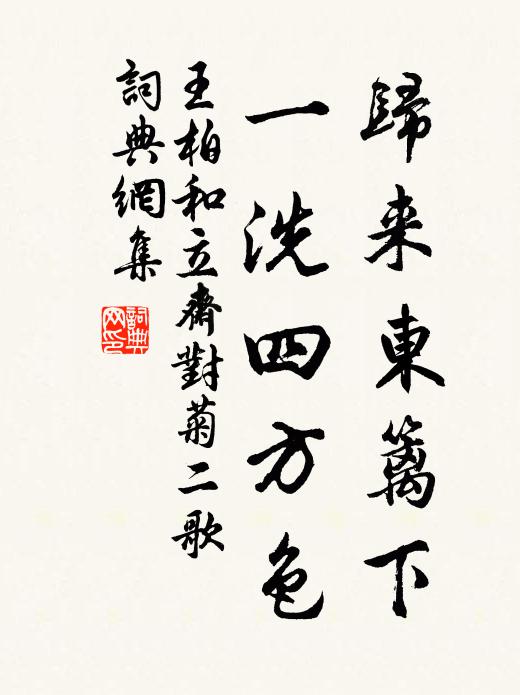 歸来東籬下
一洗四方色
王柏和立齋對菊二歌
詞典網集
詞典网印